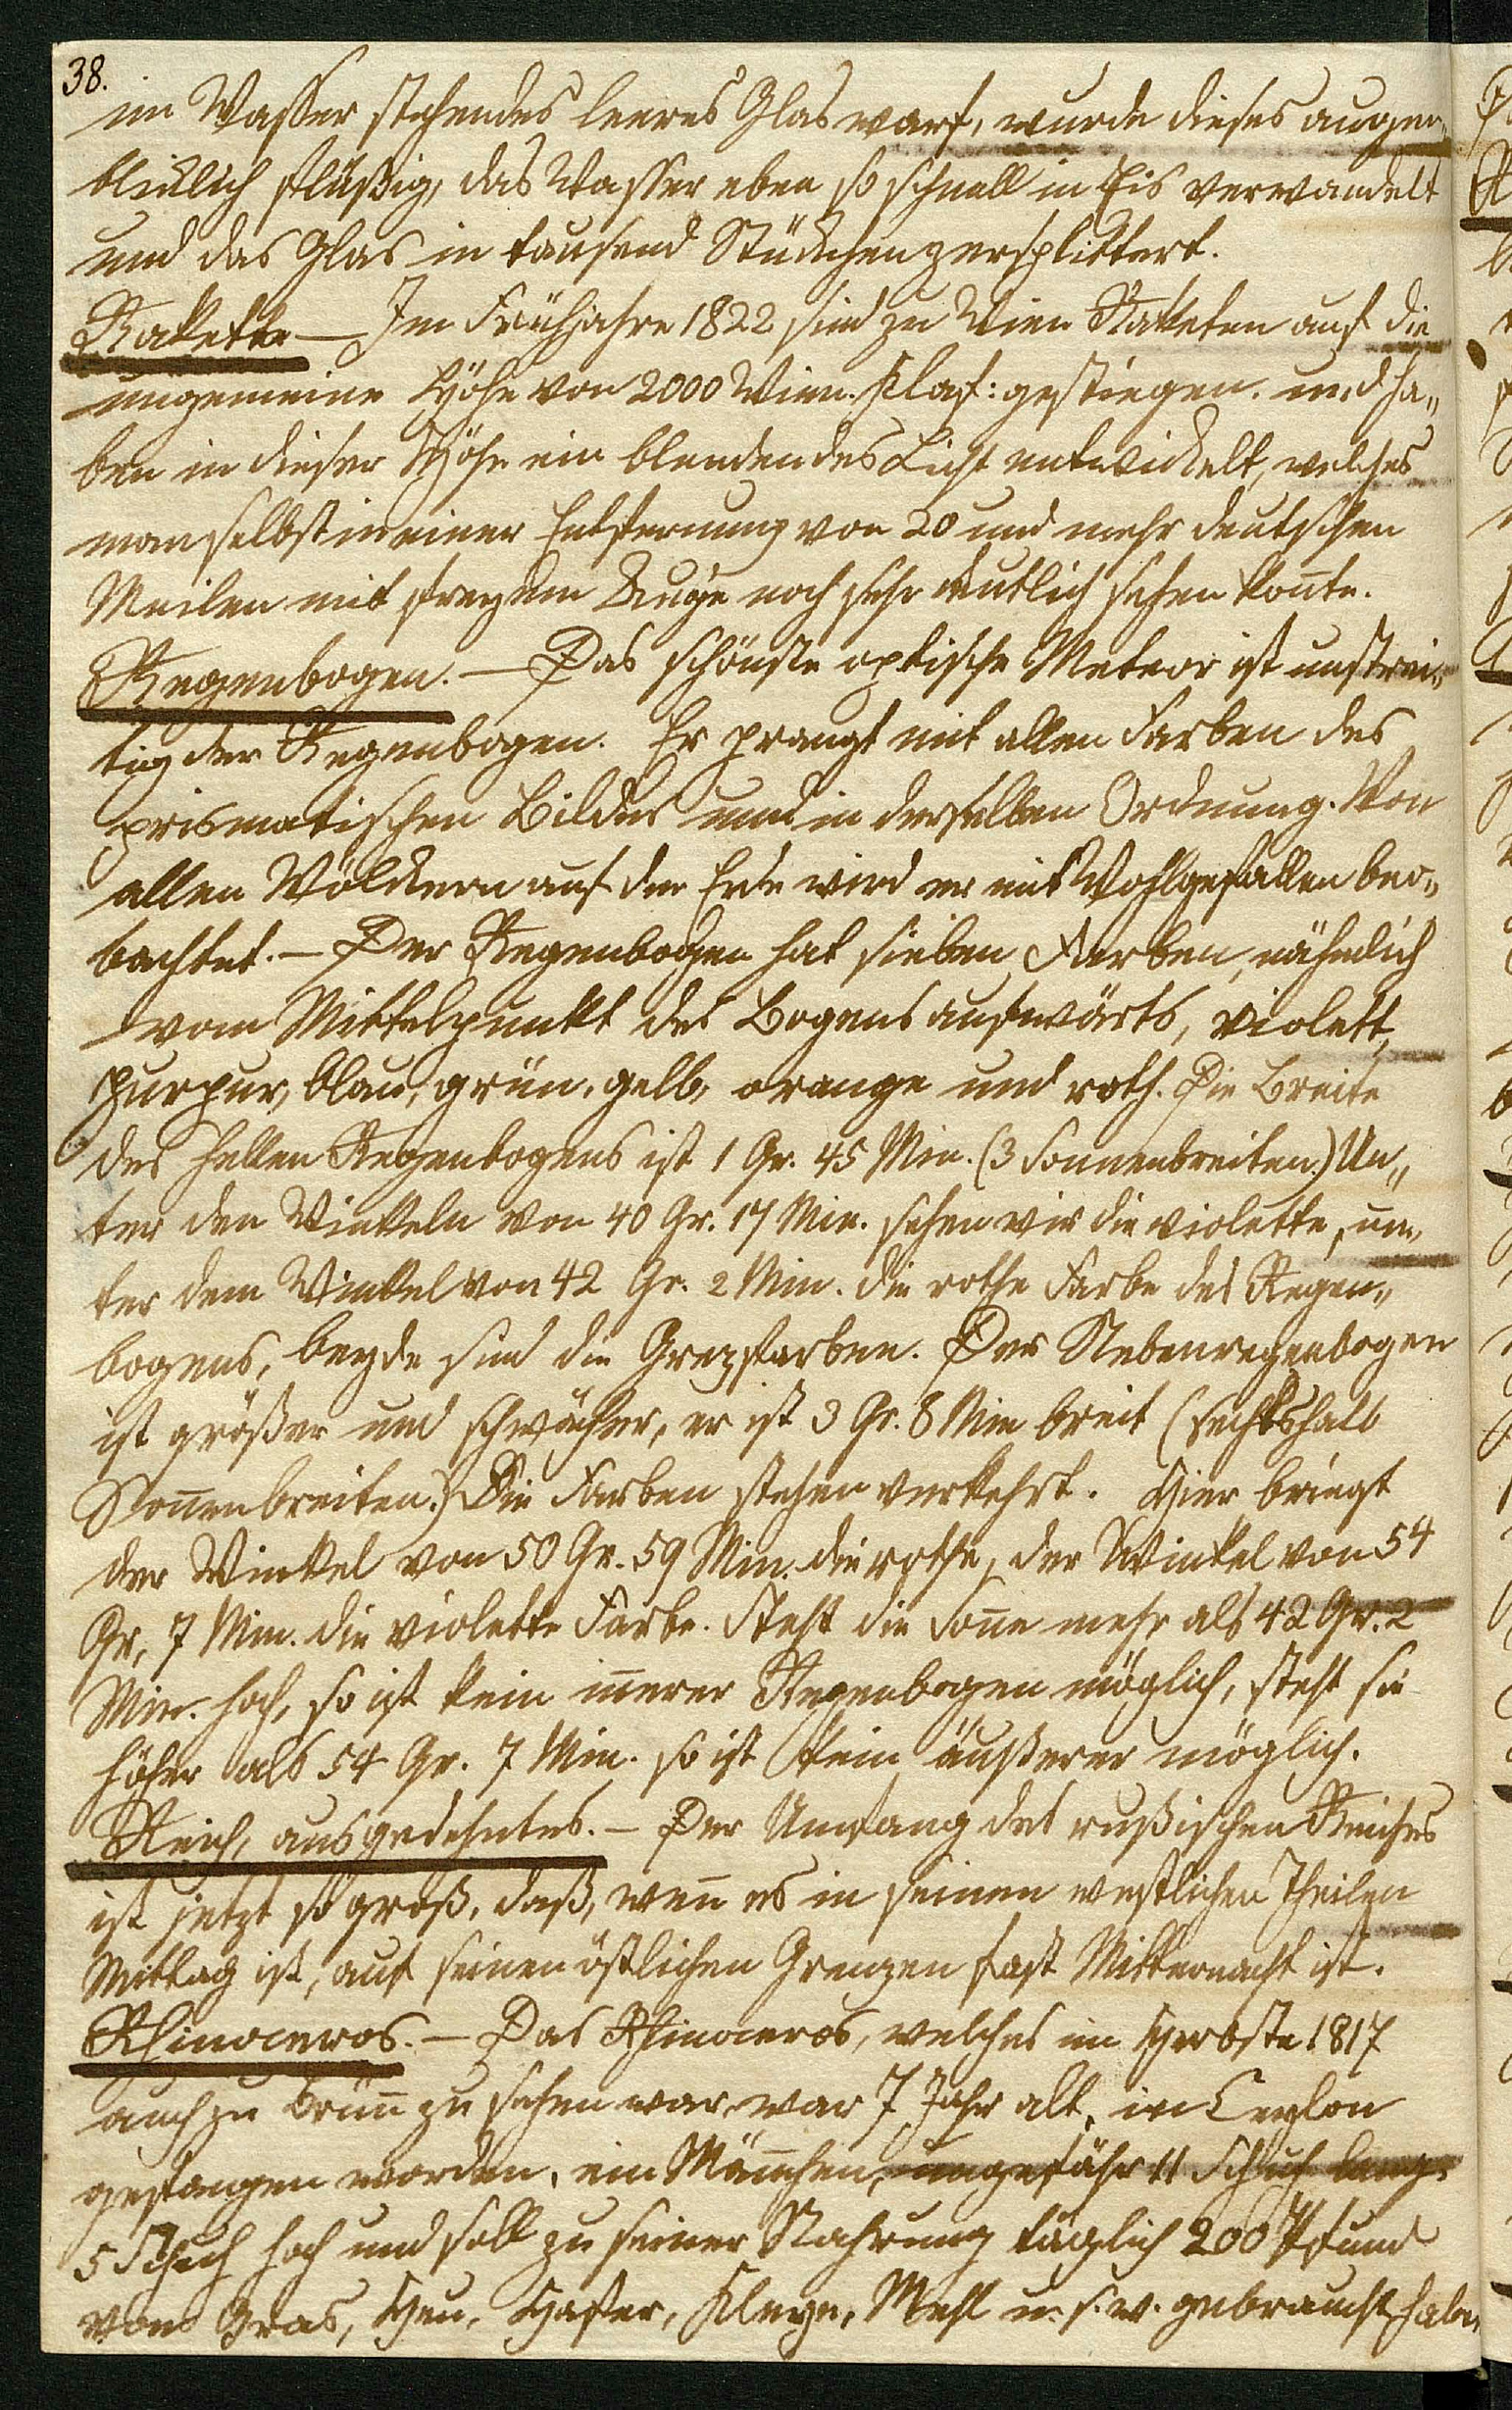 38.
im Wasser stehendes leeres Glas warf, wurde dieses augen„
blicklich flüßig, das Wasser eben so schnell in Eis verwandelt
und das Glas in tausend Stückchen zersplittert.
Rakette — Im Frühjahre 1822 sind zu Wien Raketen auf die
ungemeine Höhe von 2000 Wien. Klaf: gestiegen. und ha„
ben in dieser Höhe ein blendendes Licht entwickelt, welches
man selbst in einer Entfernung von 20 und mehr deutschen
Meilen mit freyem Auge noch sehr deutlich sehen kon̄te.
Regenbogen. — Das schönste optische Meteor ist unstrei„
tig der Regenbogen. Er prangt mit allen Farben des
prismatischen Bildes und in derselben Ordnung. Von
allen Völckern auf der Erde wird er mit Wohlgefallen beo„
bachtet. — Der Regenbogen hat sieben Farben, nähmlich
vom Mittelpunkt des Bogens aufwärts, violett,
purpur, blau, grün, gelb, orange und roth. Die Breite
des hellen Regenbogens ist 1 Gr. 45 Min. (3 Sonnenbreiten.) Un„
ter den Winkeln von 40 Gr. 17 Min. sehen wir die violette, un„
ter dem Winkel von 42 Gr. 2 Min. die rothe Farbe des Regen„
bogens, beyde sind die Grezfarben. Der Nebenregenbogen
ist größer und schwächer, er ist 3 Gr. 8 Min breit (sechsthalb
Son̄enbreiten.) Die Farben stehen verkehrt. Hier bringt
der Winkel von 50 Gr. 59 Min. die rothe, der Winkel von 54
Gr, 7 Min. die violette Farbe. Steht die Son̄e mehr als 42 Gr. 2
Min. hoch, so ist kein in̄erer Regenbogen möglich, steht sie
höher als 54 Gr. 7 Min. so ist kein äußerer möglich.
Reich, ausgedehntes. — Der Umfang des rußischen Reiches
ist jetzt so groß, daß, wen̄ es in seinen westlichen Theilen
Mittag ist, auf seinen östlichen Grenzen fast Mitternacht ist.
Rhinoceros. — Das Rhinoceros, welches im Herbste 1817
auch zu Brün̄ zu sehen war, war 7 Jahr alt, in Ceylon
gefangen worden, ein Män̄chen, ungefähr 11 Schuh lang,
5 Schuh hoch und soll zu seiner Nahrung täglich 200 Pfund
von Gras, Heu, Hafer, Kleye, Mehl u. s. w. gebraucht haben.